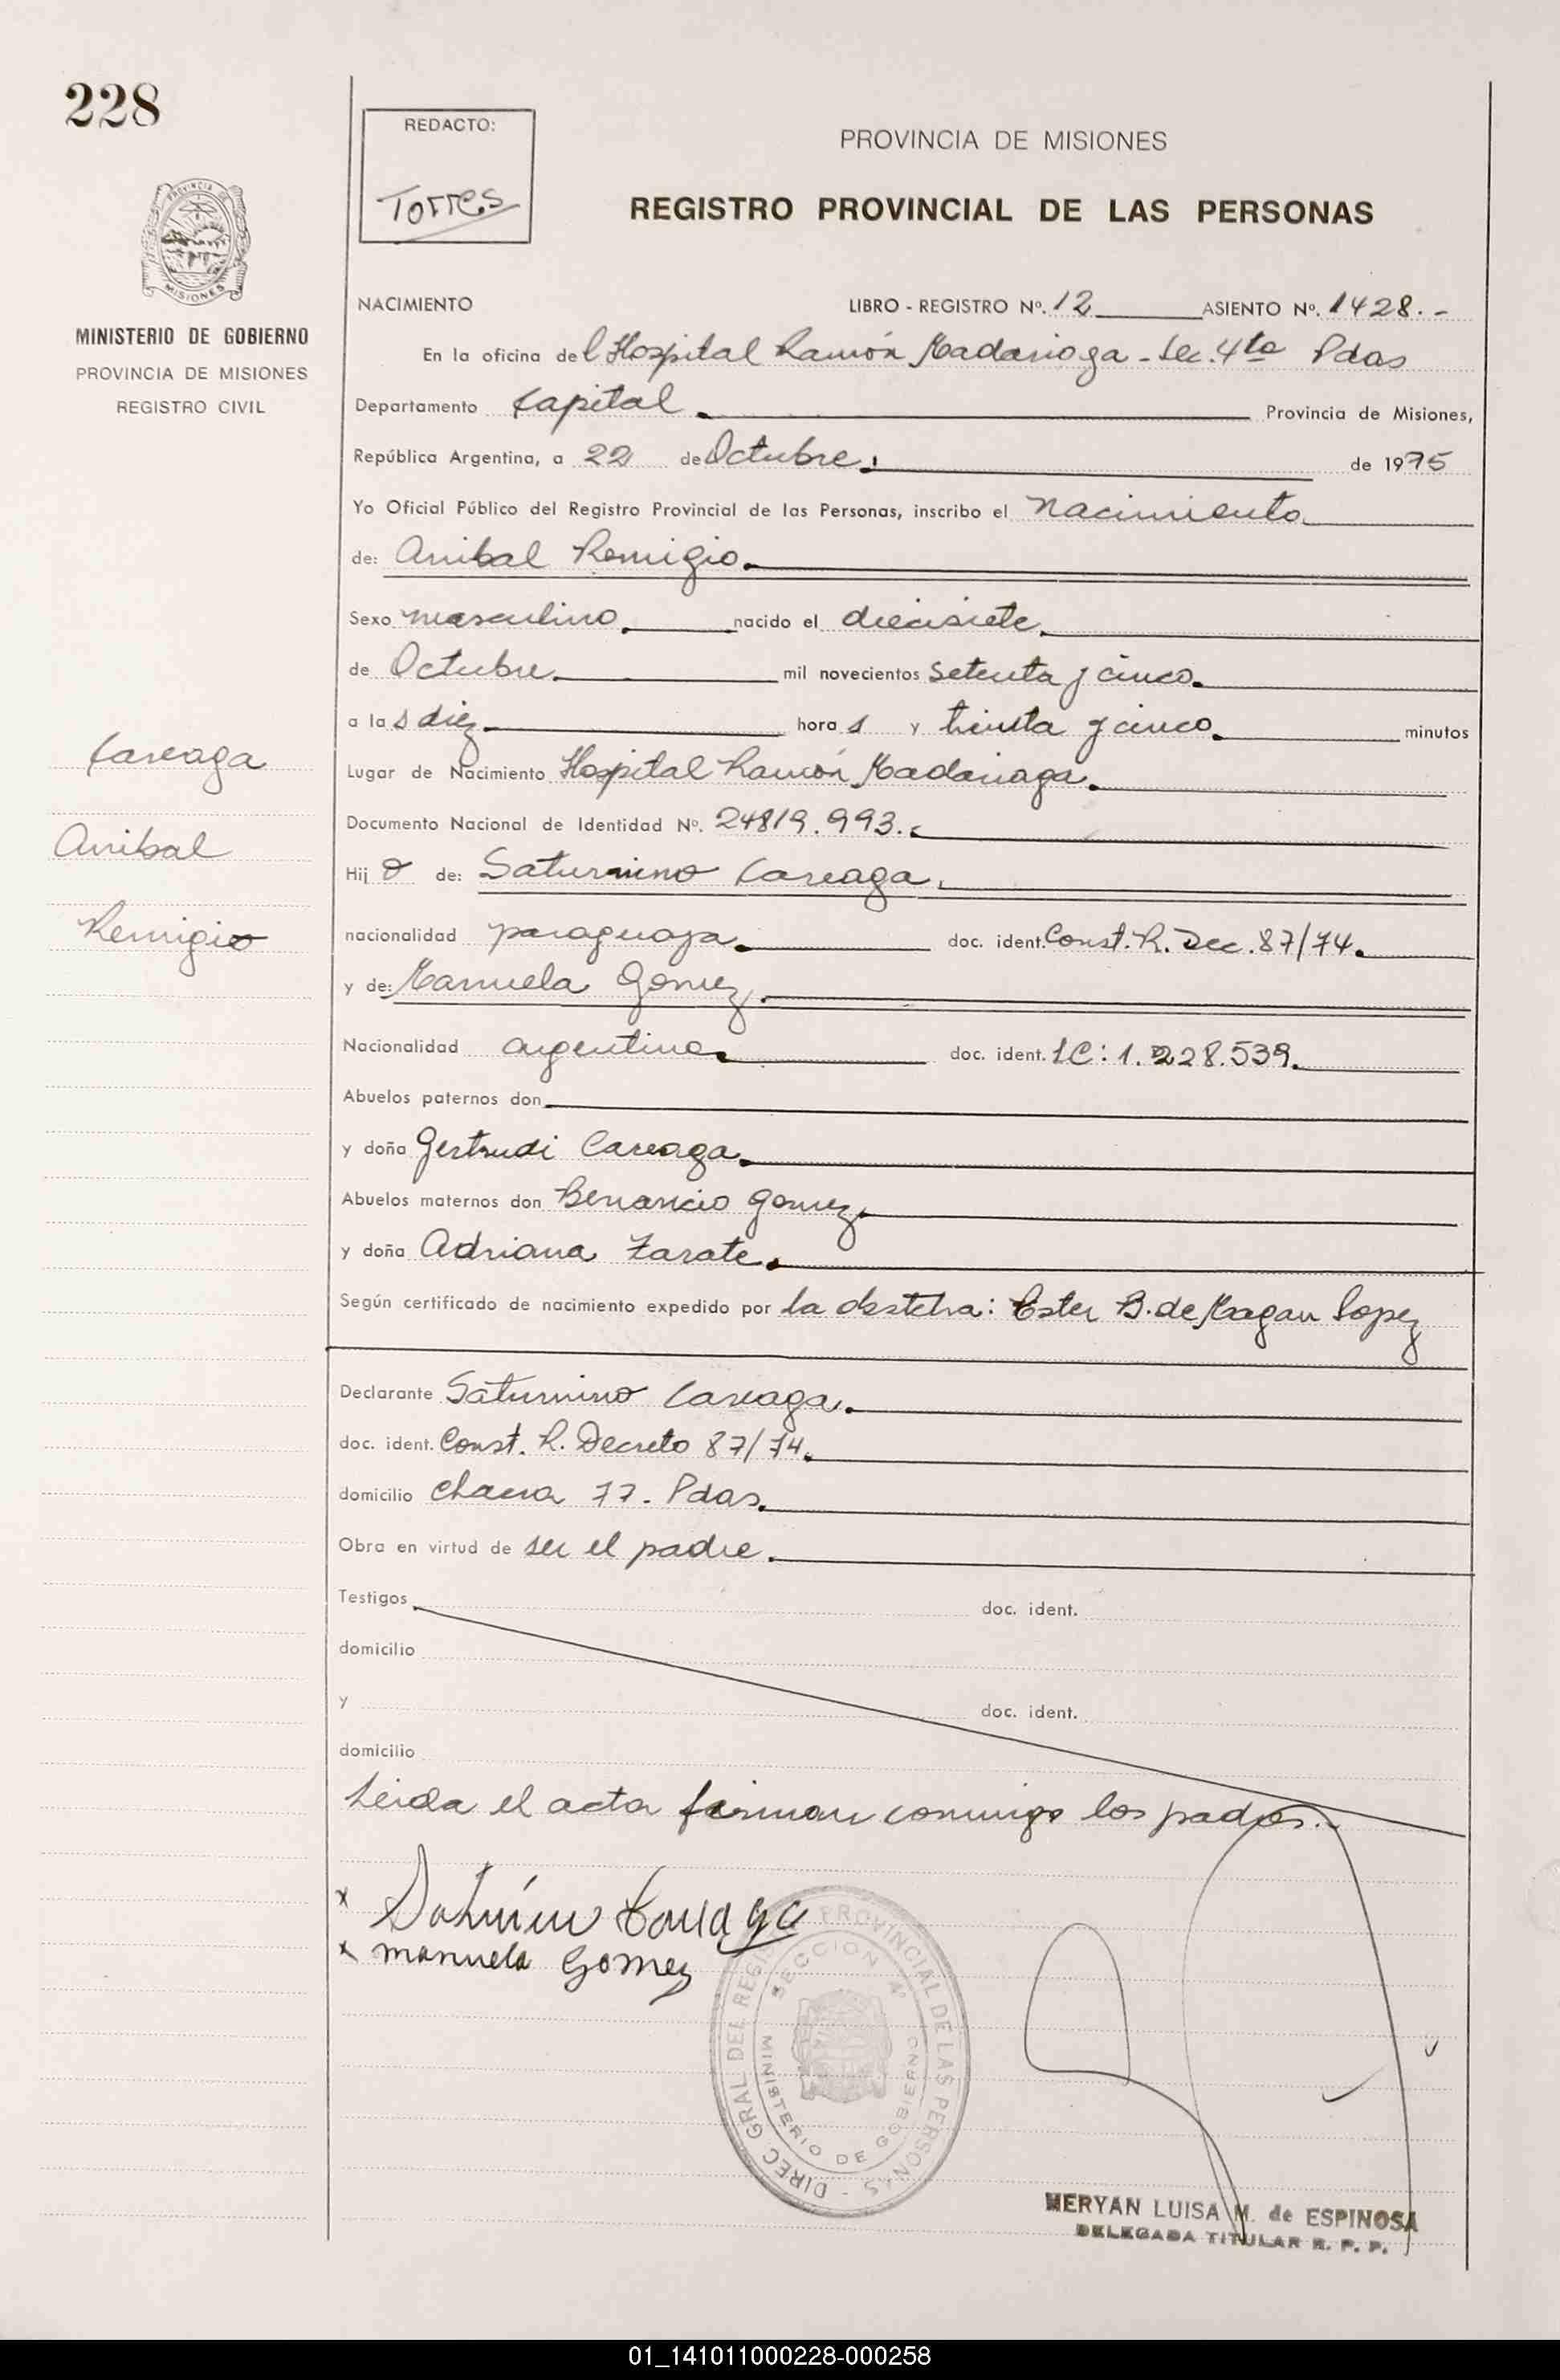 228
PROVINCIA DE
MISIONES
MINISTERIO DE GOBIERNO
PROVINCIA DE MISIONES
REGISTRO CIVIL
Careaga
Anibal
Remigio
REDACTO:
Torres
PROVINCIA DE MISIONES
REGISTRO PROVINCIAL DE LAS PERSONAS
NACIMIENTO LIBRO - REGISTRO Nº. 12 ASIENTO Nº. 1428.-
En la oficina del Hospital Ramón Madariaga - Sec. 4ta Pdas
Departamento Capital. Provincia de Misiones,
República Argentina, a 22 de Octubre. de 1975
Yo Oficial Público del Registro Provincial de las Personas, inscribo el nacimiento
de: Anibal Remigio.
Sexo masculino. nacido el diecisiete.
de Octubre. mil novecientos setenta y cinco.
a las diez hora s y treinta y cinco. minutos
Lugar de Nacimiento Hospital Ramón Madariaga.
Documento Nacional de Identidad Nº. 24819.993.-
Hijo de: Saturnino Careaga.
nacionalidad paraguaya. doc. ident. Const. R. Dec. 87/74.
y de: Manuela Gomez.
Nacionalidad argentina. doc. ident. LC: 1.228.539.
Abuelos paternos don
y doña Gertrudi Careaga.
Abuelos maternos don Benancio Gomez.
y doña Adriana Zarate.
Según certificado de nacimiento expedido por la obstetra: Ester B. de Magan Lopez
Declarante Saturnino Careaga.
doc. ident. Const. R. Decreto 87/74.
domicilio Chacra 77. Pdas.
Obra en virtud de ser el padre.
Testigos doc. ident.
domicilio
y doc. ident.
domicilio
Leida el acta firman conmigo los padres.-
x
x manuela Gomez
DIREC GRAL DEL REGIS PROVINCIAL DE LAS PERSONAS -
SECCION 4º
MINISTERIO DE GOBIERNO
MERYAN LUISA M. de ESPINOSA
DELEGADA TITULAR R. P. P.
01_141011000228-000258